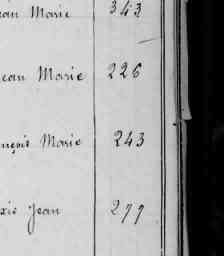 ean Marie 343
ean Marie 226
nçois Marie 243
xis Jean 277